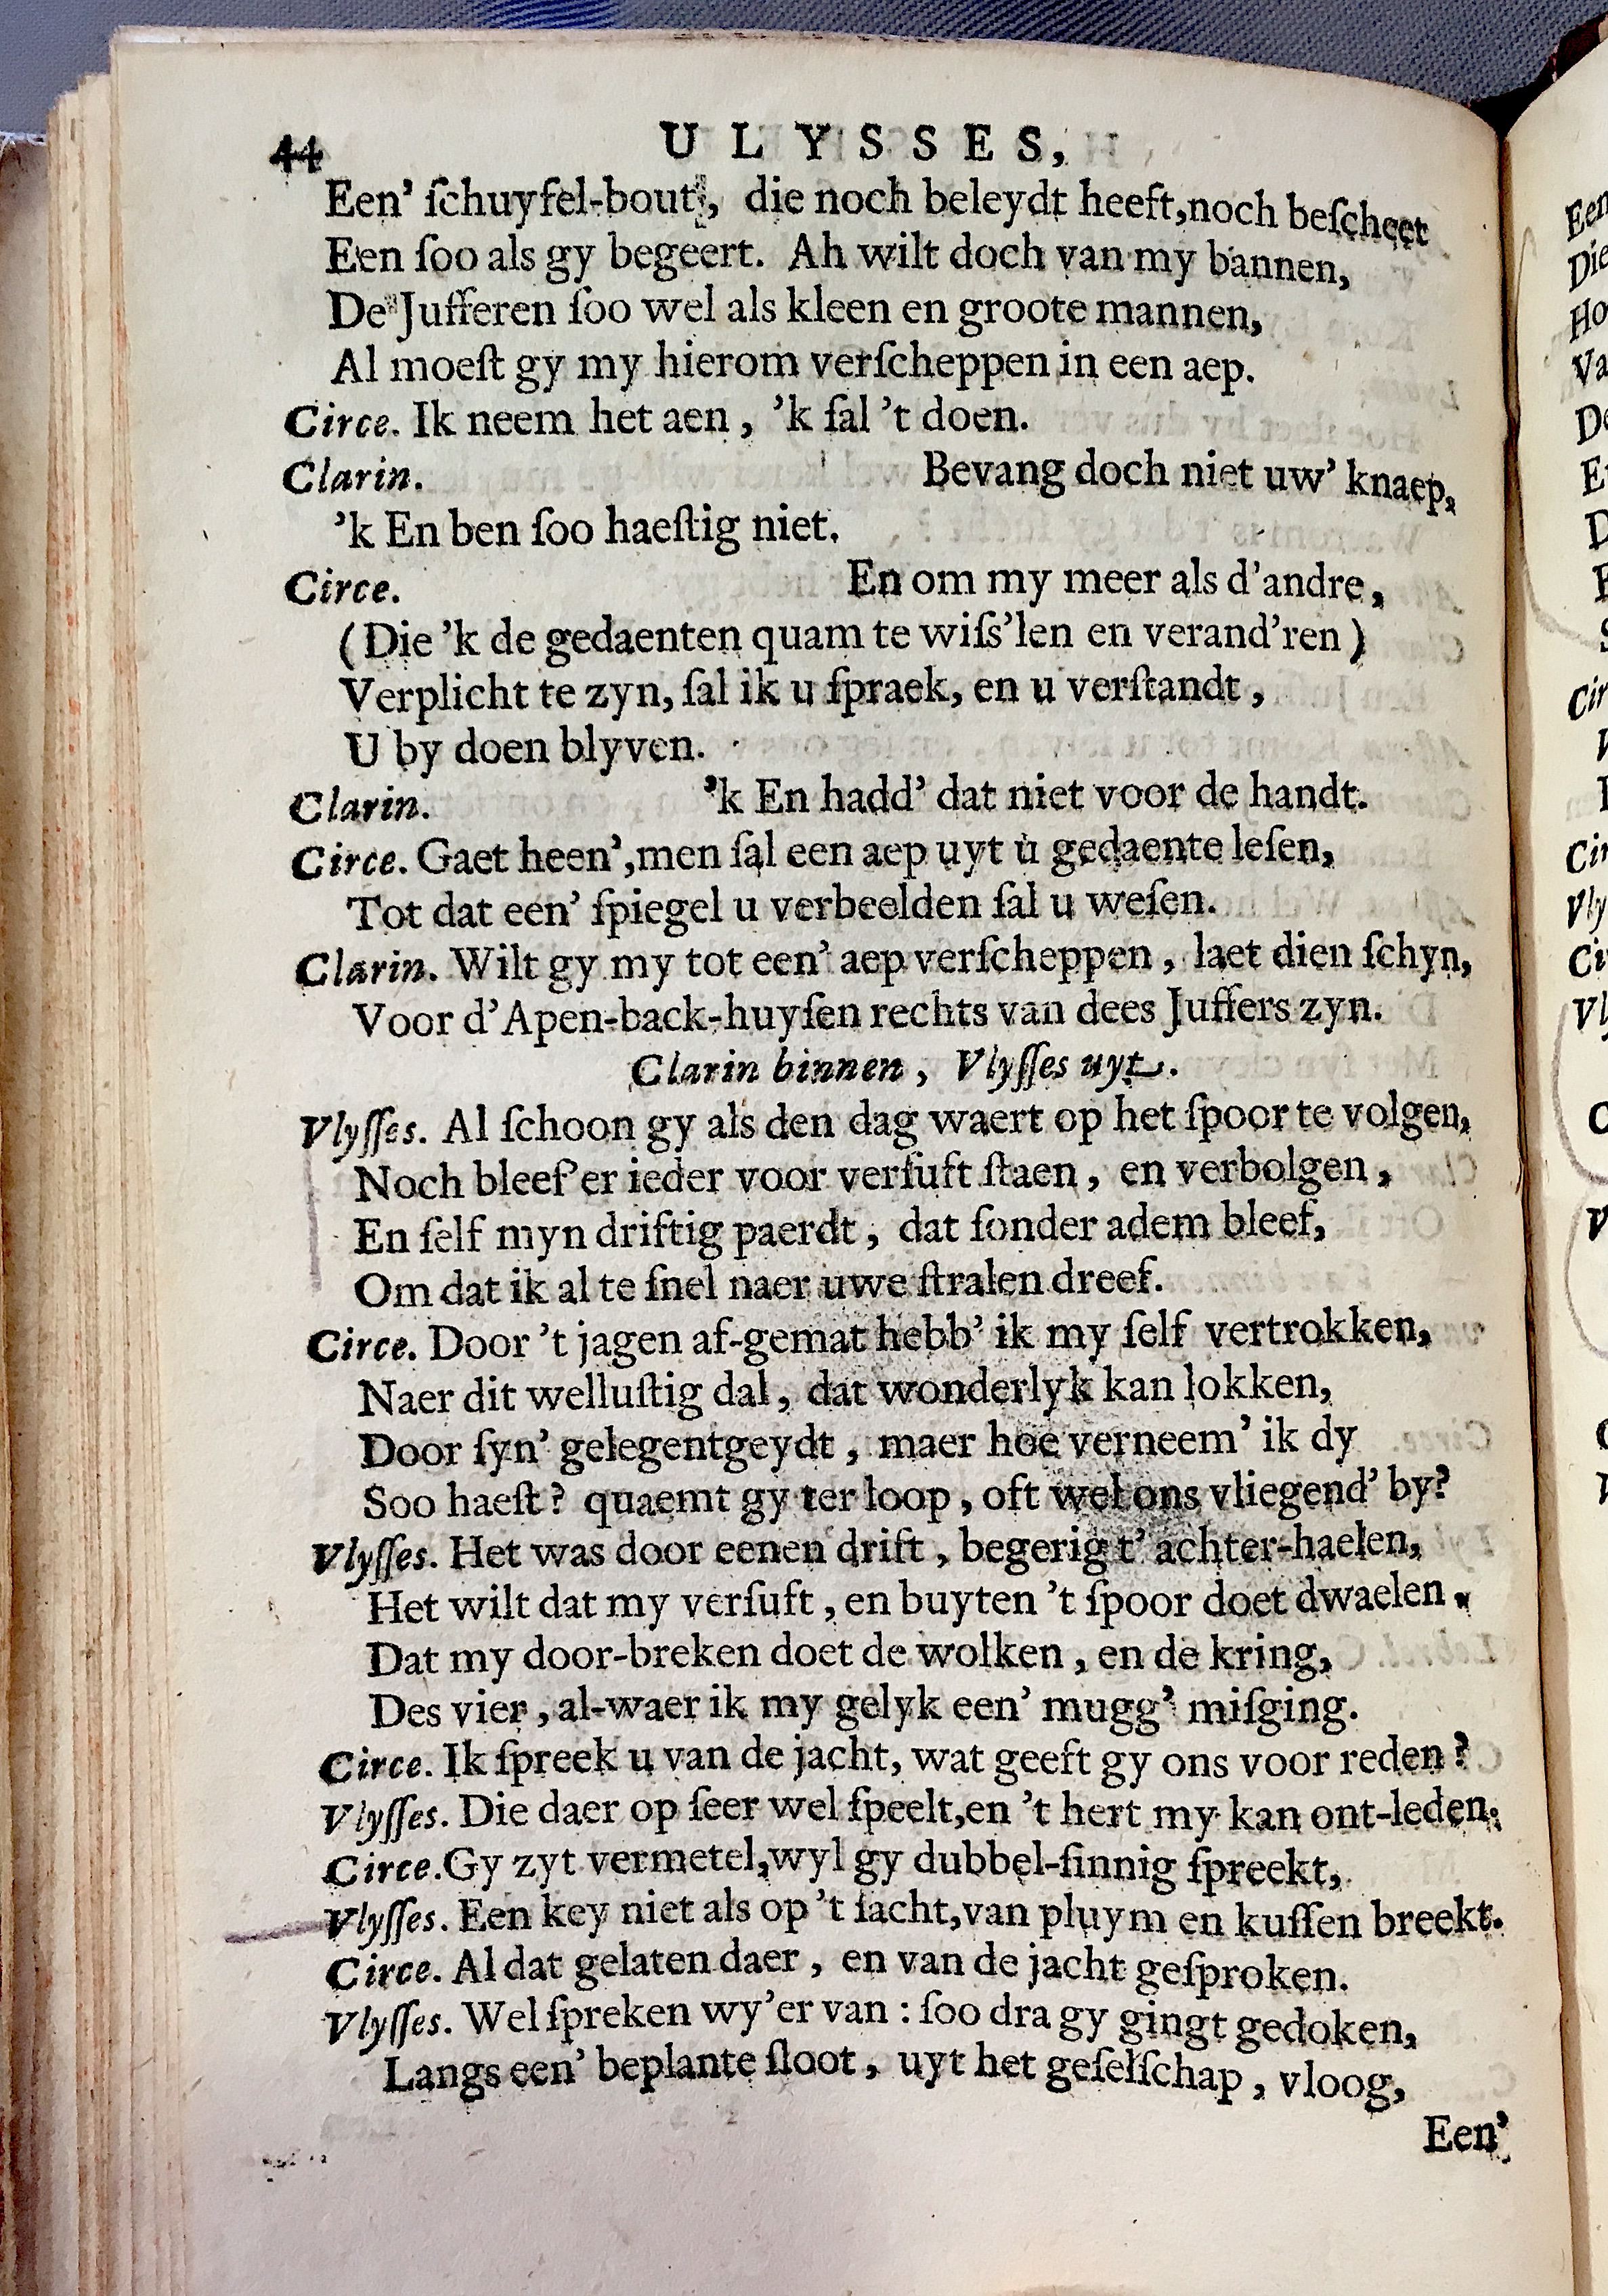 44 ULYSSES,
Een' ſchuyfel-bout, die noch beleydt heeft,noch beſcheet
Een ſoo als gy begeert. Ah wilt doch van my bannen,
De Jufferen ſoo wel als kleen en groote mannen,
Al moeſt gy my hierom verſcheppen in een aep.
Circe. Ik neem het aen, 'k ſal 't doen.
Clarin. Bevang doch niet uw' knaep,
'k En ben ſoo haeſtig niet.
Circe. En om my meer als d'andre,
(Die 'k de gedaenten quam te wiſs'len en verand'ren)
Verplicht te zyn, ſal ik u ſpraek, en u verſtandt,
U by doen blyven.
Clarin. 'k En hadd' dat niet voor de handt.
Circe. Gaet heen',men ſal een aep uyt u gedaente leſen,
Tot dat een' ſpiegel u verbeelden ſal u weſen.
Clarin. Wilt gy my tot een' aep verſcheppen, laet dien ſchyn,
Voor d'Apen-back-huyſen rechts van dees Juffers zyn.
Clarin binnen, Vlyſſes uyt.
Vlyſſes. Al ſchoon gy als den dag waert op het ſpoor te volgen,
Noch bleef'er ieder voor verſuft ſtaen, en verbolgen,
En ſelf myn driftig paerdt, dat ſonder adem bleef,
Om dat ik al te ſnel naer uwe ſtralen dreef.
Circe. Door 't jagen af-gemat hebb' ik my ſelf vertrokken,
Naer dit welluſtig dal, dat wonderlyk kan lokken,
Door ſyn' gelegentgeydt, maer hoe verneem' ik dy
Soo haeſt? quaemt gy ter loop, oft wel ons vliegend' by?
Vlyſſes. Het was door eenen drift, begerig t' achter-haelen,
Het wilt dat my verſuft, en buyten 't ſpoor doet dwaelen,
Dat my door-breken doet de wolken, en de kring,
Des vier, al-waer ik my gelyk een' mugg' miſging.
Circe. Ik ſpreek u van de jacht, wat geeft gy ons voor reden?
Vlyſſes. Die daer op ſeer wel ſpeelt,en 't hert my kan ont-leden;
Circe.Gy zyt vermetel,wyl gy dubbel-ſinnig ſpreekt,
Vlyſſes. Een key niet als op 't ſacht,van pluym en kuſſen breekt.
Circe. Al dat gelaten daer, en van de jacht geſproken.
Vlyſſes. Wel ſpreken wy'er van : ſoo dra gy gingt gedoken,
Langs een' beplante ſloot, uyt het geſelſchap, vloog,
Een'